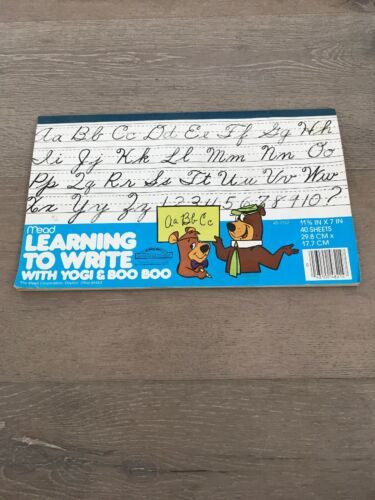 Aa Bb Cc Dd Ee Ff Gg Hh
Ii Jj Kk Ll Mm Nn Oo
Pp Qq Rr Ss Tt Uu Vv Ww
Xx Yy Zz 1 2 3 4 5 6 7 8 9 10 ?
Aa Bb Cc
Mead
LEARNING
TO WRITE
WITH YOGI & BOO BOO
The Mead Corporation, Dayton, Ohio 45463
11¾ IN X 7 IN
40 SHEETS
29.8 CM X
17.7 CM